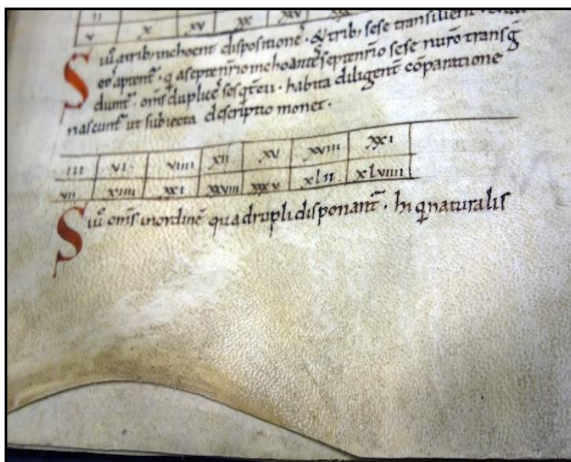 II X XV XX XXV
V
Siu͛o a trib; inchoent dispositionē · & trib; sese transilient ·
eos aptent · q a septenario inchoantes septenario sese numero transg̅
diunt · oms̄ duplices sesqterti · habita diligenti cōparatione
nascunt᷑ ut subiecta descriptio monet ·
III VI · VIIII XII XV XVIII XXI
VII XIIII XXI XXVIII XXXV XLII XLVIIII
Siu͛o oms̄ inordinē quadrupli disponant᷑ · hi q̨ naturalis